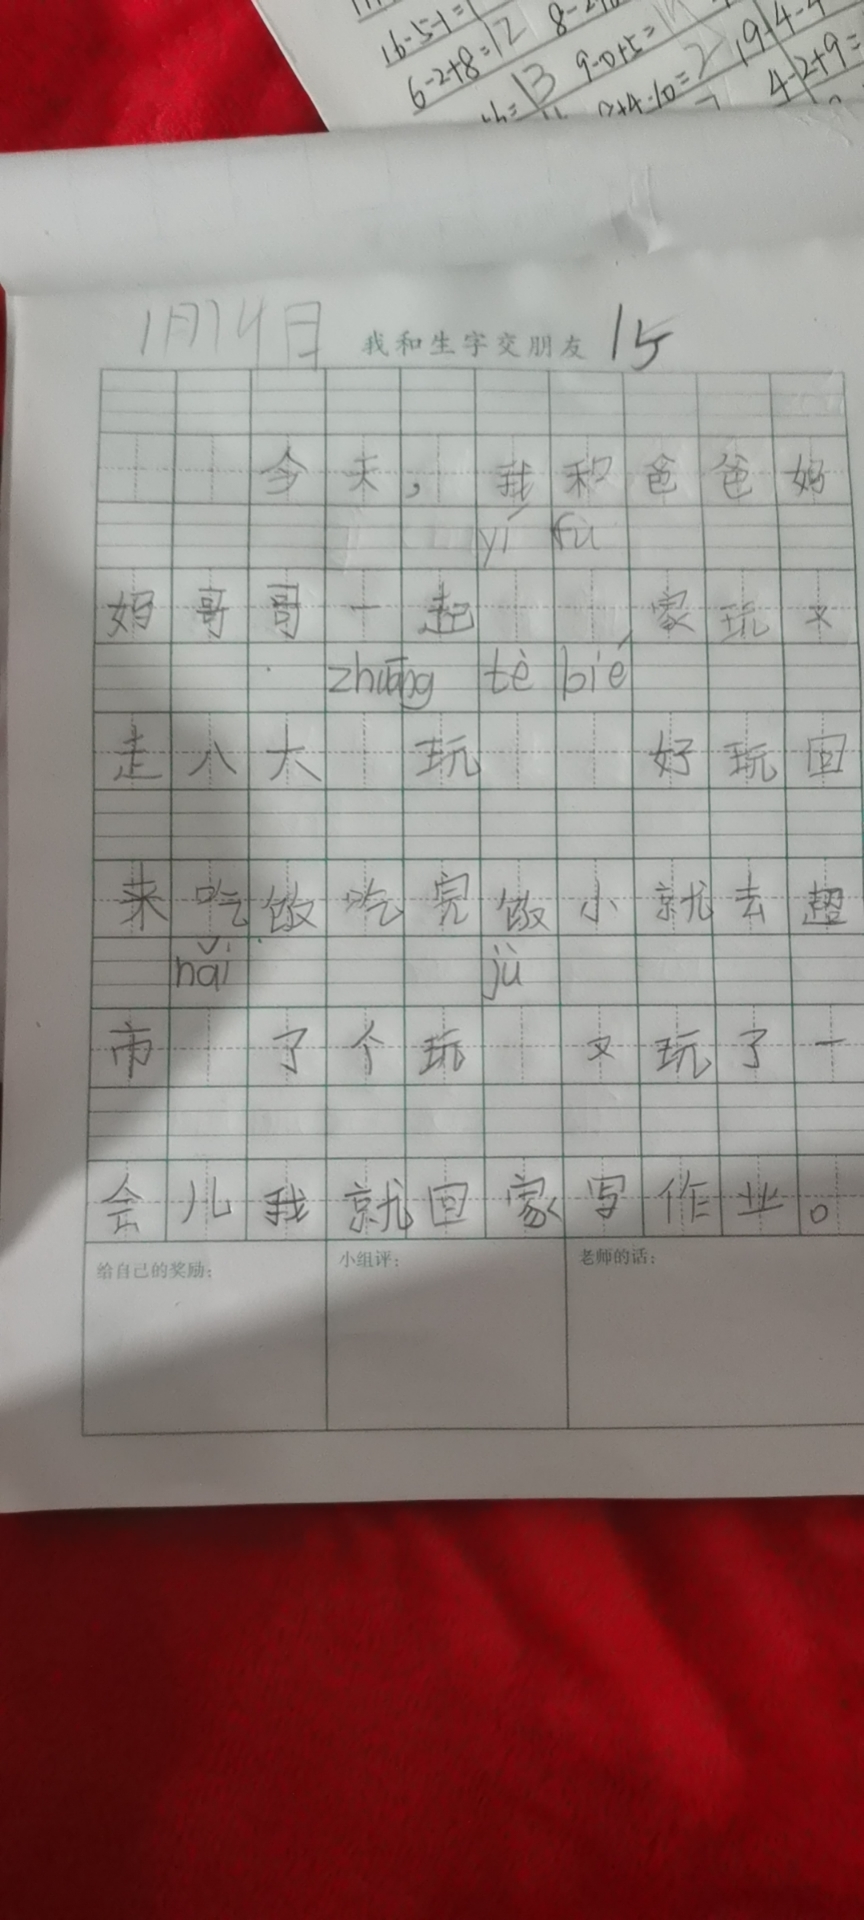 16-5-1=
6-2+8=12
=13 9-0+5=
+4-10=2 19-4-4
4-2+9=
1月14日 我和生字交朋友 15
今天，我和爸爸妈
yí fù
妈哥哥一起 家玩又
zhuāng tè bié
走八大 玩 好玩回
来吃饭吃完饭小就去超
nǎi jù
市 了个玩 又玩了一
会儿我就回家写作业。
给自己的奖励： 小组评： 老师的话：